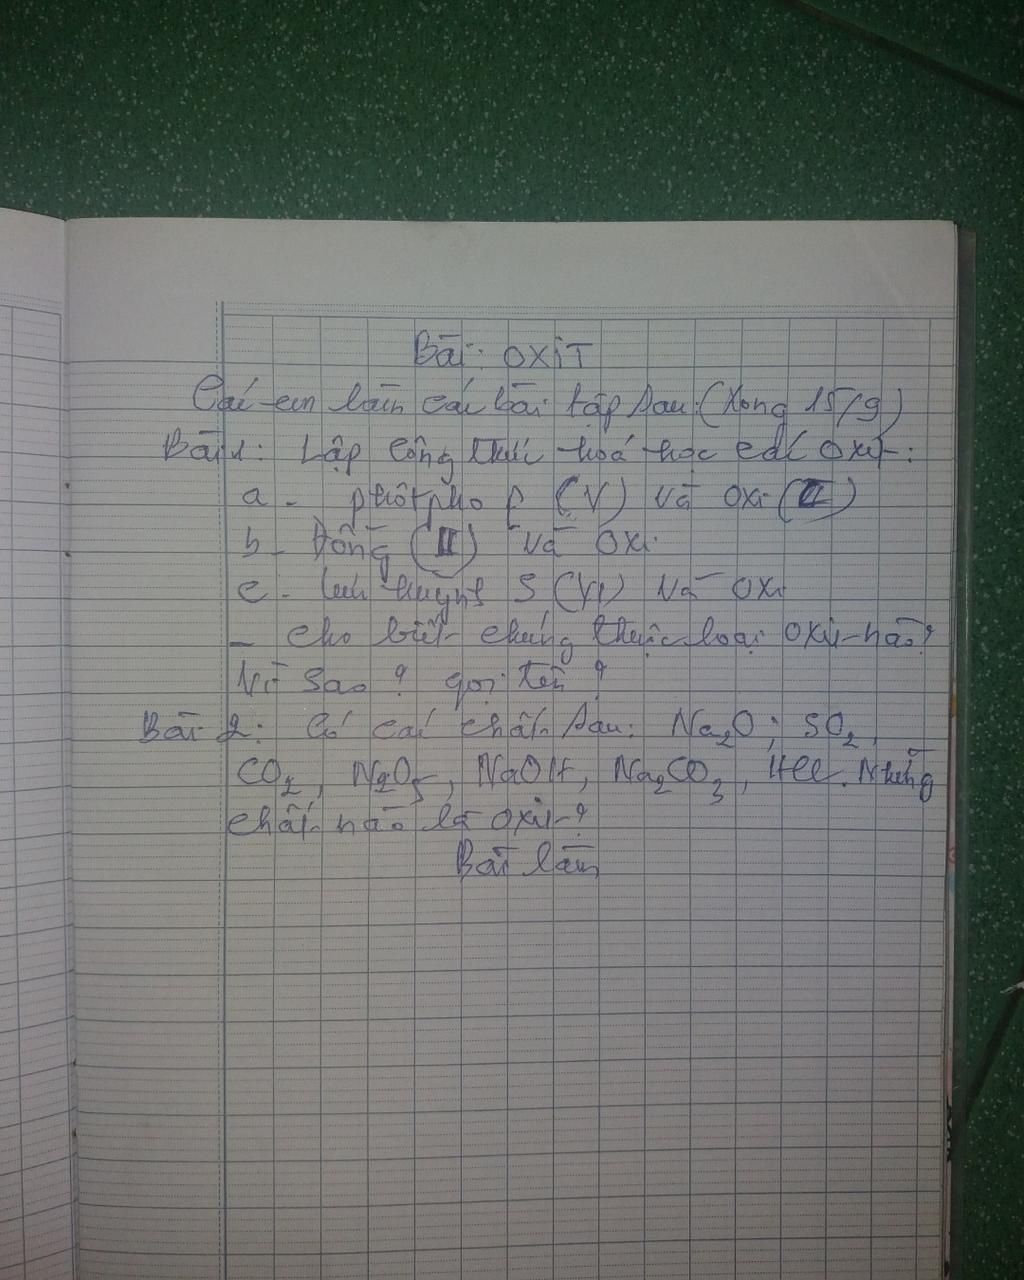 Bài: OXIT
Các em làm các bài tập sau: (Xong 15/9)
Bài 1: Lập công thức hoá học các oxit:
a - phôtpho P (V) và oxi (II)
b - Đồng (II) và oxi
c - lưu huynh S (VI) và oxi
- cho biết chúng thuộc loại oxit nào?
Vì sao? gọi tên?
Bài 2: Có các chất sau: Na2O; SO2,
CO2, N2O5, NaOH, Na2CO3, HCl. Những
chất nào là oxit?
Bài làm